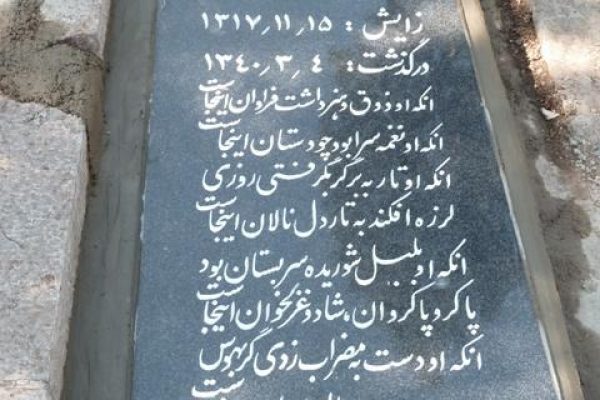 زایش : ۱۵٫ ۱۱٫ ۱۳۱۷
درگذشت: ۴ ٫۳ ٫۱۳۴۰
آنکه او ذوق و هنر داشت فراوان اینجاست
آنکه او نغمه سرا بود چو دستان اینجاست
آنکه او تار به بر گر بگرفتی روزی
لرزه افکند به تار دل نالان اینجاست
آنکه او بلبل شوریده سر بستان بود
پاکرو پاکروان، شاد و غزلخوان اینجاست
آنکه او دست به مضراب زدی گر بهوس